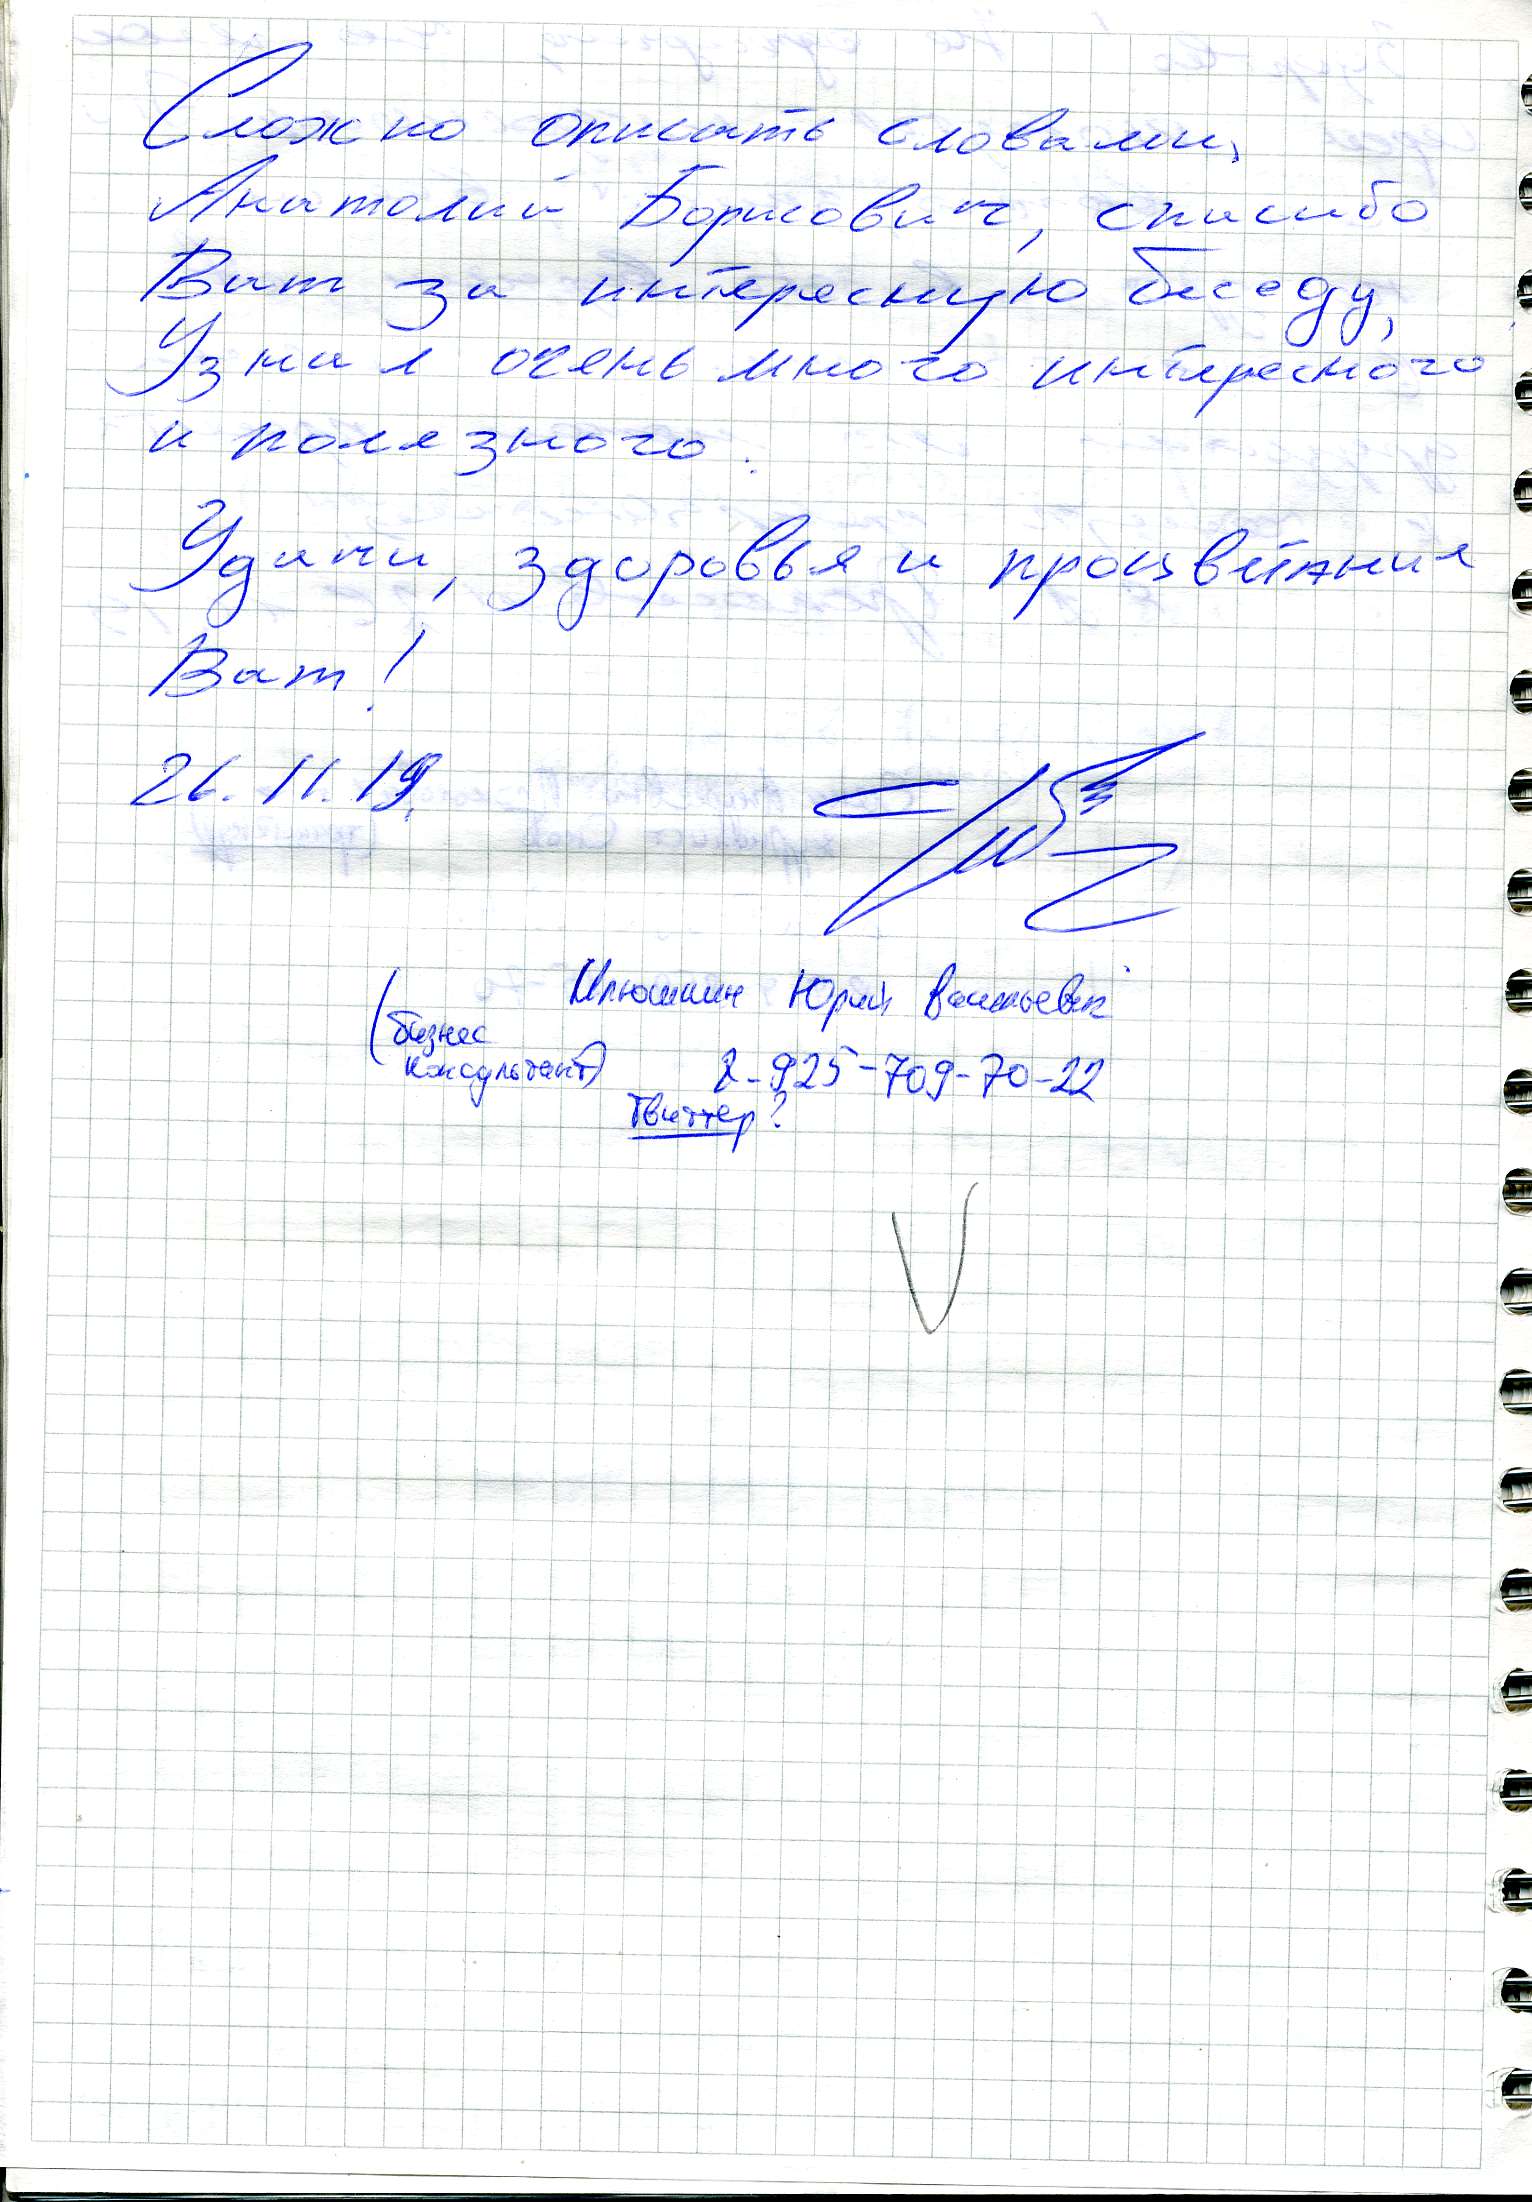 Сложно описать словами,
Анатолий Борисович, спасибо
Вам за интересную беседу,
Узнал очень много интересного
и полезного.
Удачи, здоровья и процветания
Вам!
26.11.19
Илюшкин Юрий Васильевич
(бизнес
консультант)
8-925-709-70-22
Твиттер?